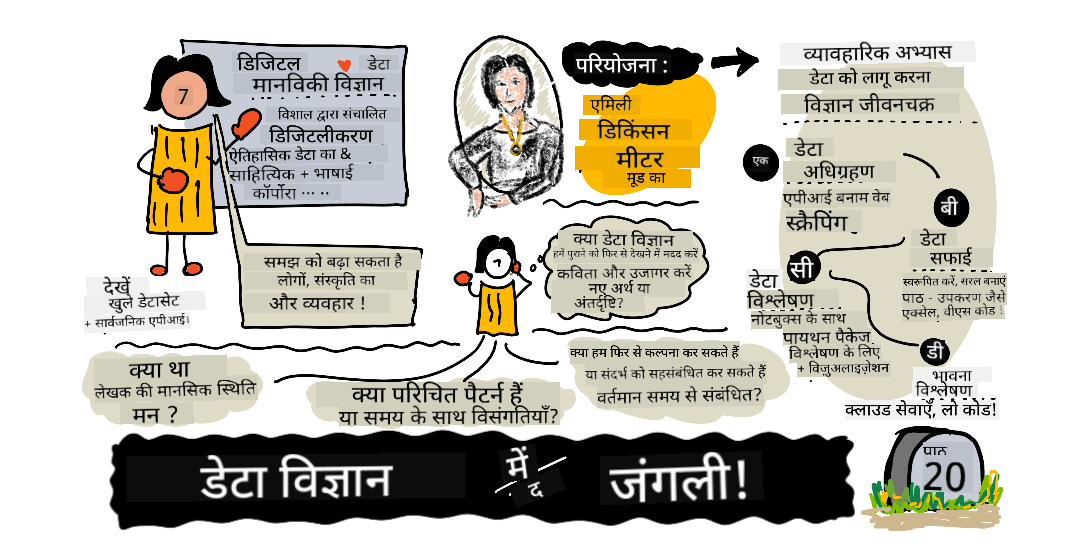 7
डिजिटल डेटा
मानविकी विज्ञान
विशाल द्वारा संचालित
डिजिटलीकरण
ऐतिहासिक डेटा का &
साहित्यिक + भाषाई
कॉर्पोरा ... ..
समझ को बढ़ा सकता है
लोगों, संस्कृति का
और व्यवहार !
देखें
खुले डेटासेट
+ सार्वजनिक एपीआई।
परियोजना :
एमिली
डिकिंसन
मीटर
मूड का
क्या डेटा विज्ञान
हमें पुराने को फिर से देखने में मदद करें
कविता और उजागर करें
नए अर्थ या
अंतर्दृष्टि?
क्या था
लेखक की मानसिक स्थिति
मन ?
क्या परिचित पैटर्न हैं
या समय के साथ विसंगतियाँ?
क्या हम फिर से कल्पना कर सकते हैं
या संदर्भ को सहसंबंधित कर सकते हैं
वर्तमान समय से संबंधित?
व्यावहारिक अभ्यास
डेटा को लागू करना
विज्ञान जीवनचक्र
एक
डेटा
अधिग्रहण
एपीआई बनाम वेब
स्क्रैपिंग
बी
डेटा
सफाई
स्वरूपित करें, सरल बनाएं
पाठ - उपकरण जैसे
एक्सेल, वीएस कोड !
सी
डेटा
विश्लेषण
नोटबुक्स के साथ
पायथन पैकेज
विश्लेषण के लिए
+ विज़ुअलाइज़ेशन
डी
भावना
विश्लेषण
क्लाउड सेवाएँ, लो कोड!
डेटा विज्ञान में द जंगली!
पाठ
20